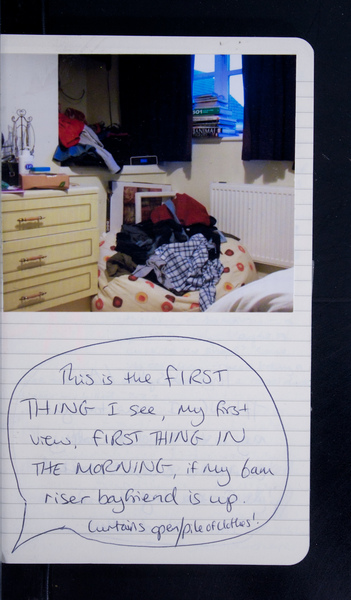 ANIMAL
This is the FIRST
THING I see, my first
view, FIRST THING IN
THE MORNING, if my 6am
riser boyfriend is up.
Curtains open/pile of clothes!